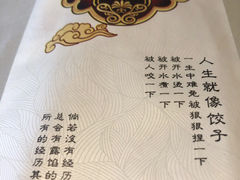 人生就像饺子
一生中难免被狠狠捏一下
被开水烫一下
被开水煮一下
被人咬一下
倘若没有经
总会有露馅的
所有的经历其